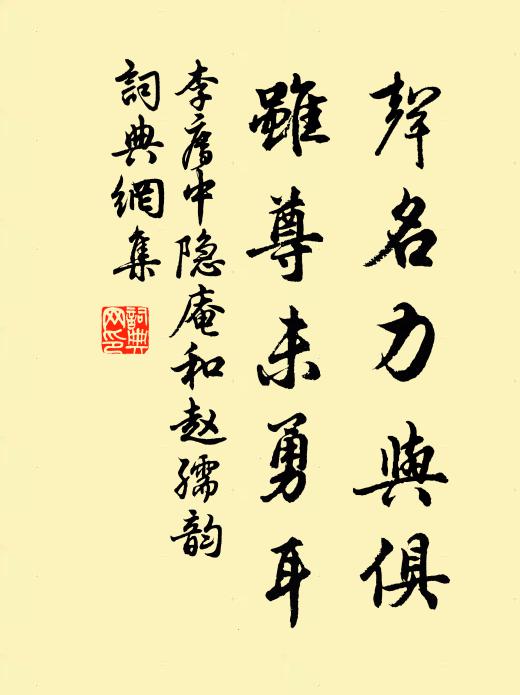 聲名力與俱
雖尊未勇耳
李廌中隐庵和赵孺韵
詞典網集
詞典网印